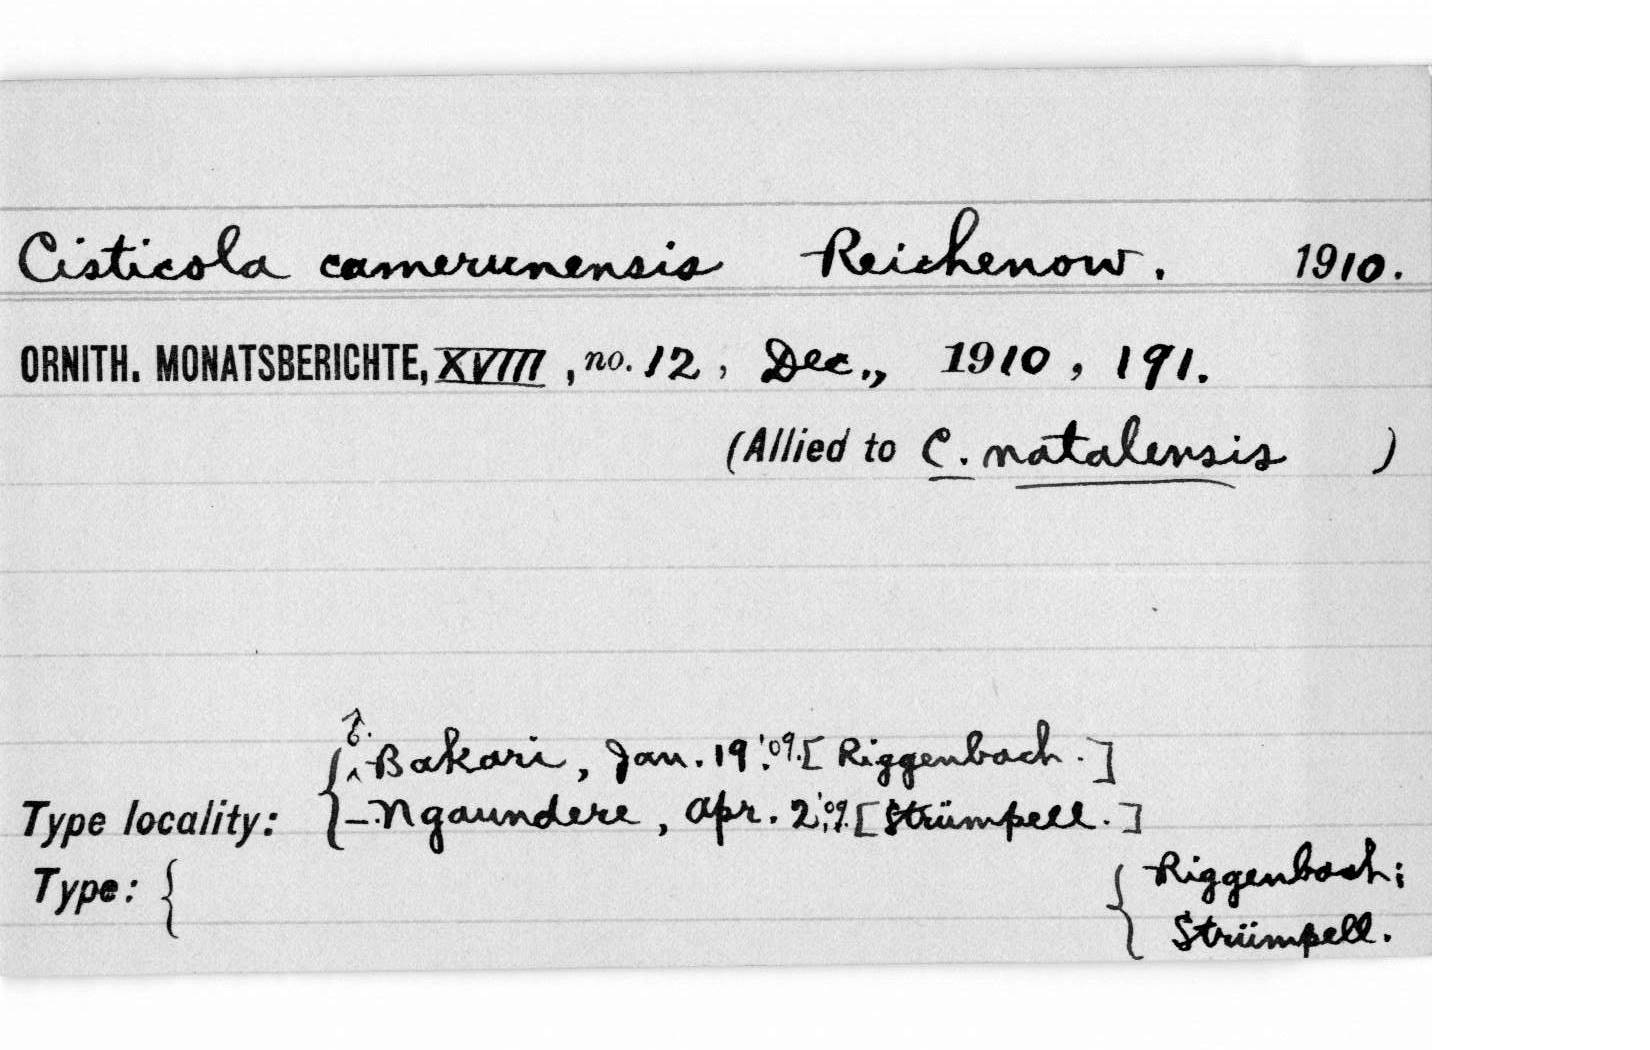 Cisticola camerunensis Reichenow. 1910.
ORNITH. MONATSBERICHTE, XVIII, no. 12, Dec., 1910, 191.
(Allied to C. natalensis )
♂. Bakari, Jan. 19, '09. [Riggenbach.]
Type locality: { – Ngaundere, Apr. 2, '09. [Strümpell.]
Type: { { Riggenbach;
Strümpell.